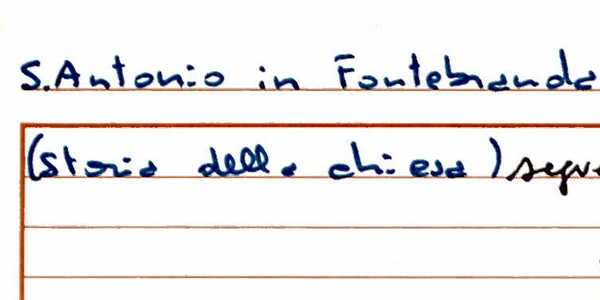 S. Antonio in Fontebranda
(storia della chiesa) segue